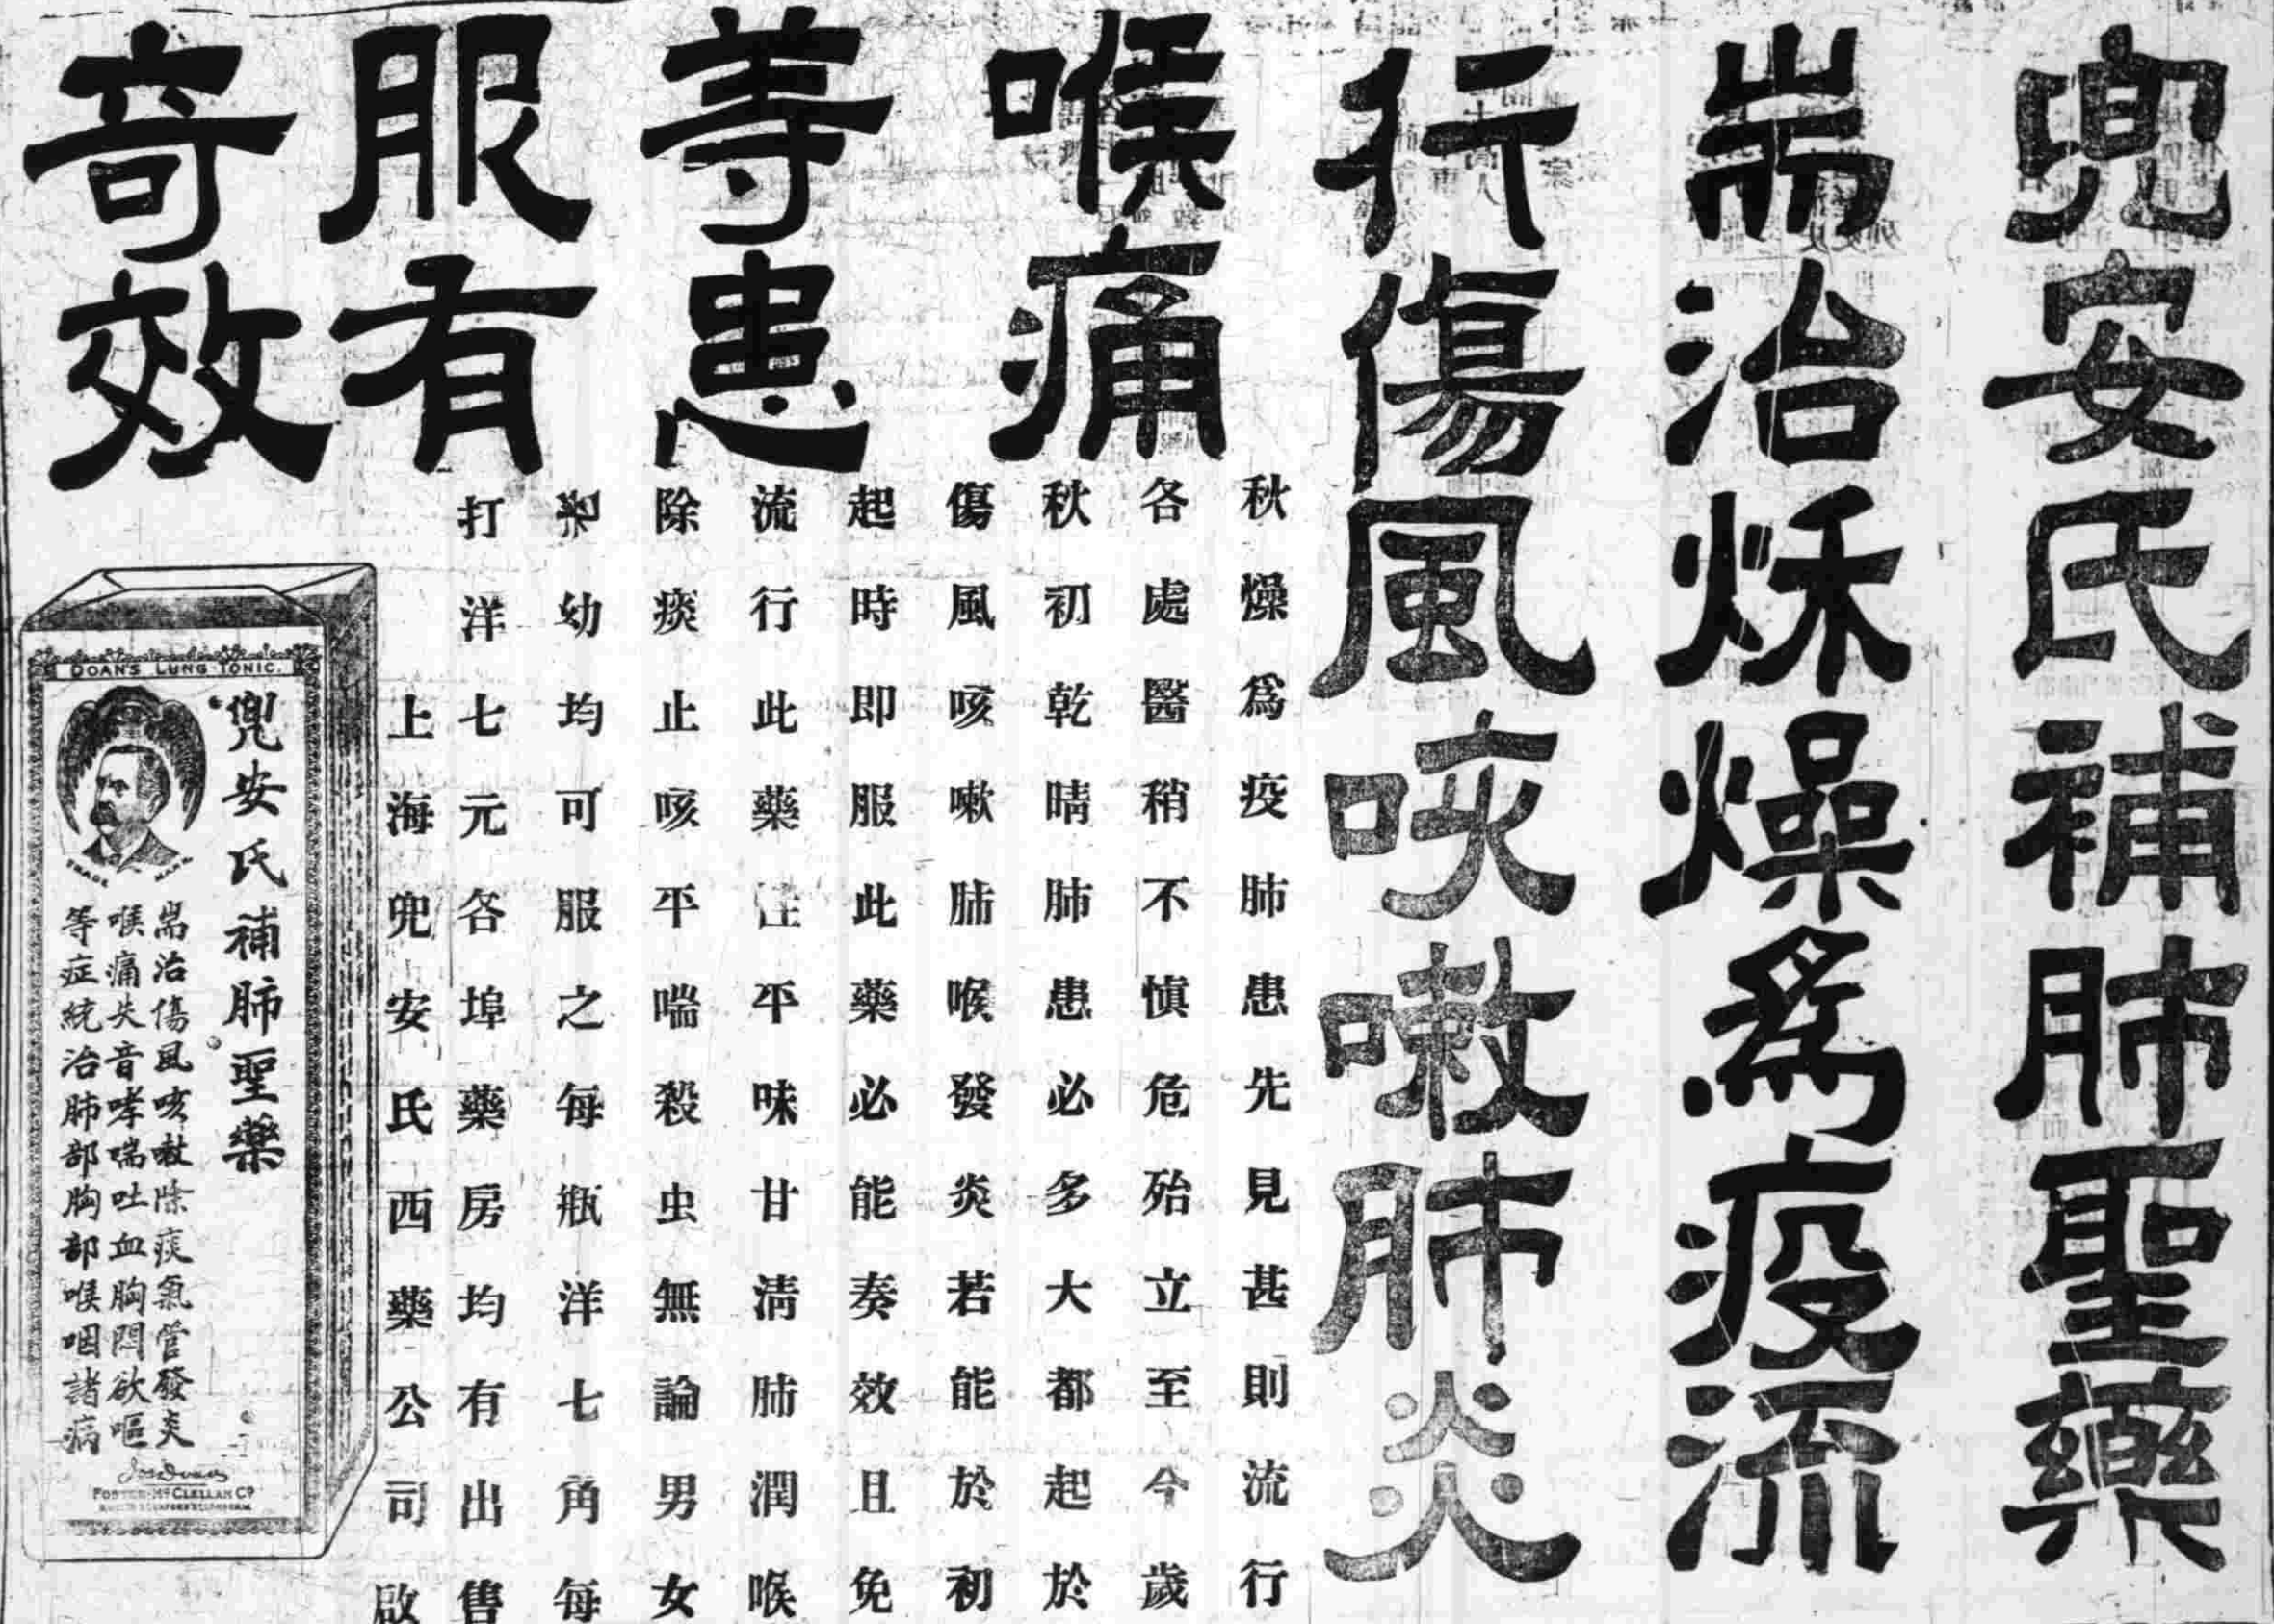 兜安氏補肺聖藥
耑治秌燥爲疫流
行傷風咳嗽肺炎
喉痛
等患
服有
奇效
秋燥爲疫肺患先見甚則流行
各處醫稍不慎危殆立至今歲
秋初乾晴肺患必多大都起於
傷風咳嗽肺喉發炎若能於初
起時即服此藥必能奏效且免
流行此藥性平味甘清肺潤喉
除痰止咳平喘殺虫無論男女
老幼均可服之每瓶洋七角每
打洋七元各埠藥房均有出售
上海兜安氏西藥公司啟
DOAN'S LUNG TONIC.
TRADE MARK
兜安氏補肺聖藥
耑治傷風咳嗽除痰氣管發炎
喉痛失音哮喘吐血胸悶欲嘔
等症統治肺部胸部喉咽諸病
Jas Doan
FOSTER-McCLELLAN CO